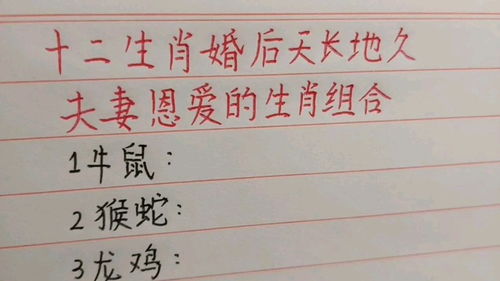 十二生肖婚后天长地久
夫妻恩爱的生肖组合
1牛鼠：
2猴蛇：
3龙鸡：